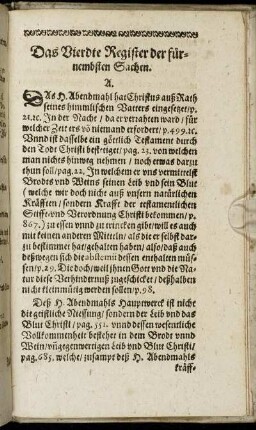 Das Vierdte Register der für-
nembsten Sachen.
A.
DAs H. Abendmahl hat Christus auß Rath
seines himmlischen Vatters eingesetzt/p.
21.ꝛc. In der Nacht / da er verrahten ward / für
welcher Zeit ers võ niemand erfordert/p.499.ꝛc.
Vnnd ist dasselbe ein Göttlich Testament durch
den Todt Christi bestetiget/pag. 23. von welchen
man nichts hinweg nemen / noch etwas darzu
thun soll/pag.22. In welchem er vns vermittelst
Brodes vnd Weins seinen Leib vnd sein Blut
(welche wir doch nicht auß vnsern natürlichen
Kräfften / sondern Krafft der testamentlichen
Stifft- vnd Verordnung Christi bekommen/p.
867.) zu essen vnnd zu trincken gibt/will es auch
mit keinen anderen Mitteln/ als die er selbst dar-
zu bestimmet hat/gehalten haben/ also/daß auch
deßwegen sich die abstemii dessen enthalten müs-
sen/p.29. Die doch/weil jhnen Gott vnd die Na-
tur diese Verhindernuß zugeschicket / deßhalben
nicht kleinmütig werden sollen/p.98.
Deß H. Abendmahls Hauptwerck ist nicht
die geistliche Niessung/ sondern der Leib vnd das
Blut Christi / pag. 351. vnnd dessen wesentliche
Vollkommenheit bestehet in dem Brodt vnnd
Wein/ vñ gegenwertigen Leib vnd Blut Christi/
pag.685. welche/ zusampt deß H. Abendmahls
kräff-